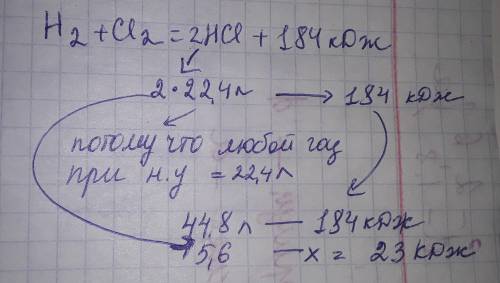 H₂ + Cl₂ = 2HCl + 184 кДж
2·22,4л → 184 кДж
потому что любой газ
при н.у = 22,4л
44,8л — 184 кДж
5,6 — x = 23 кДж